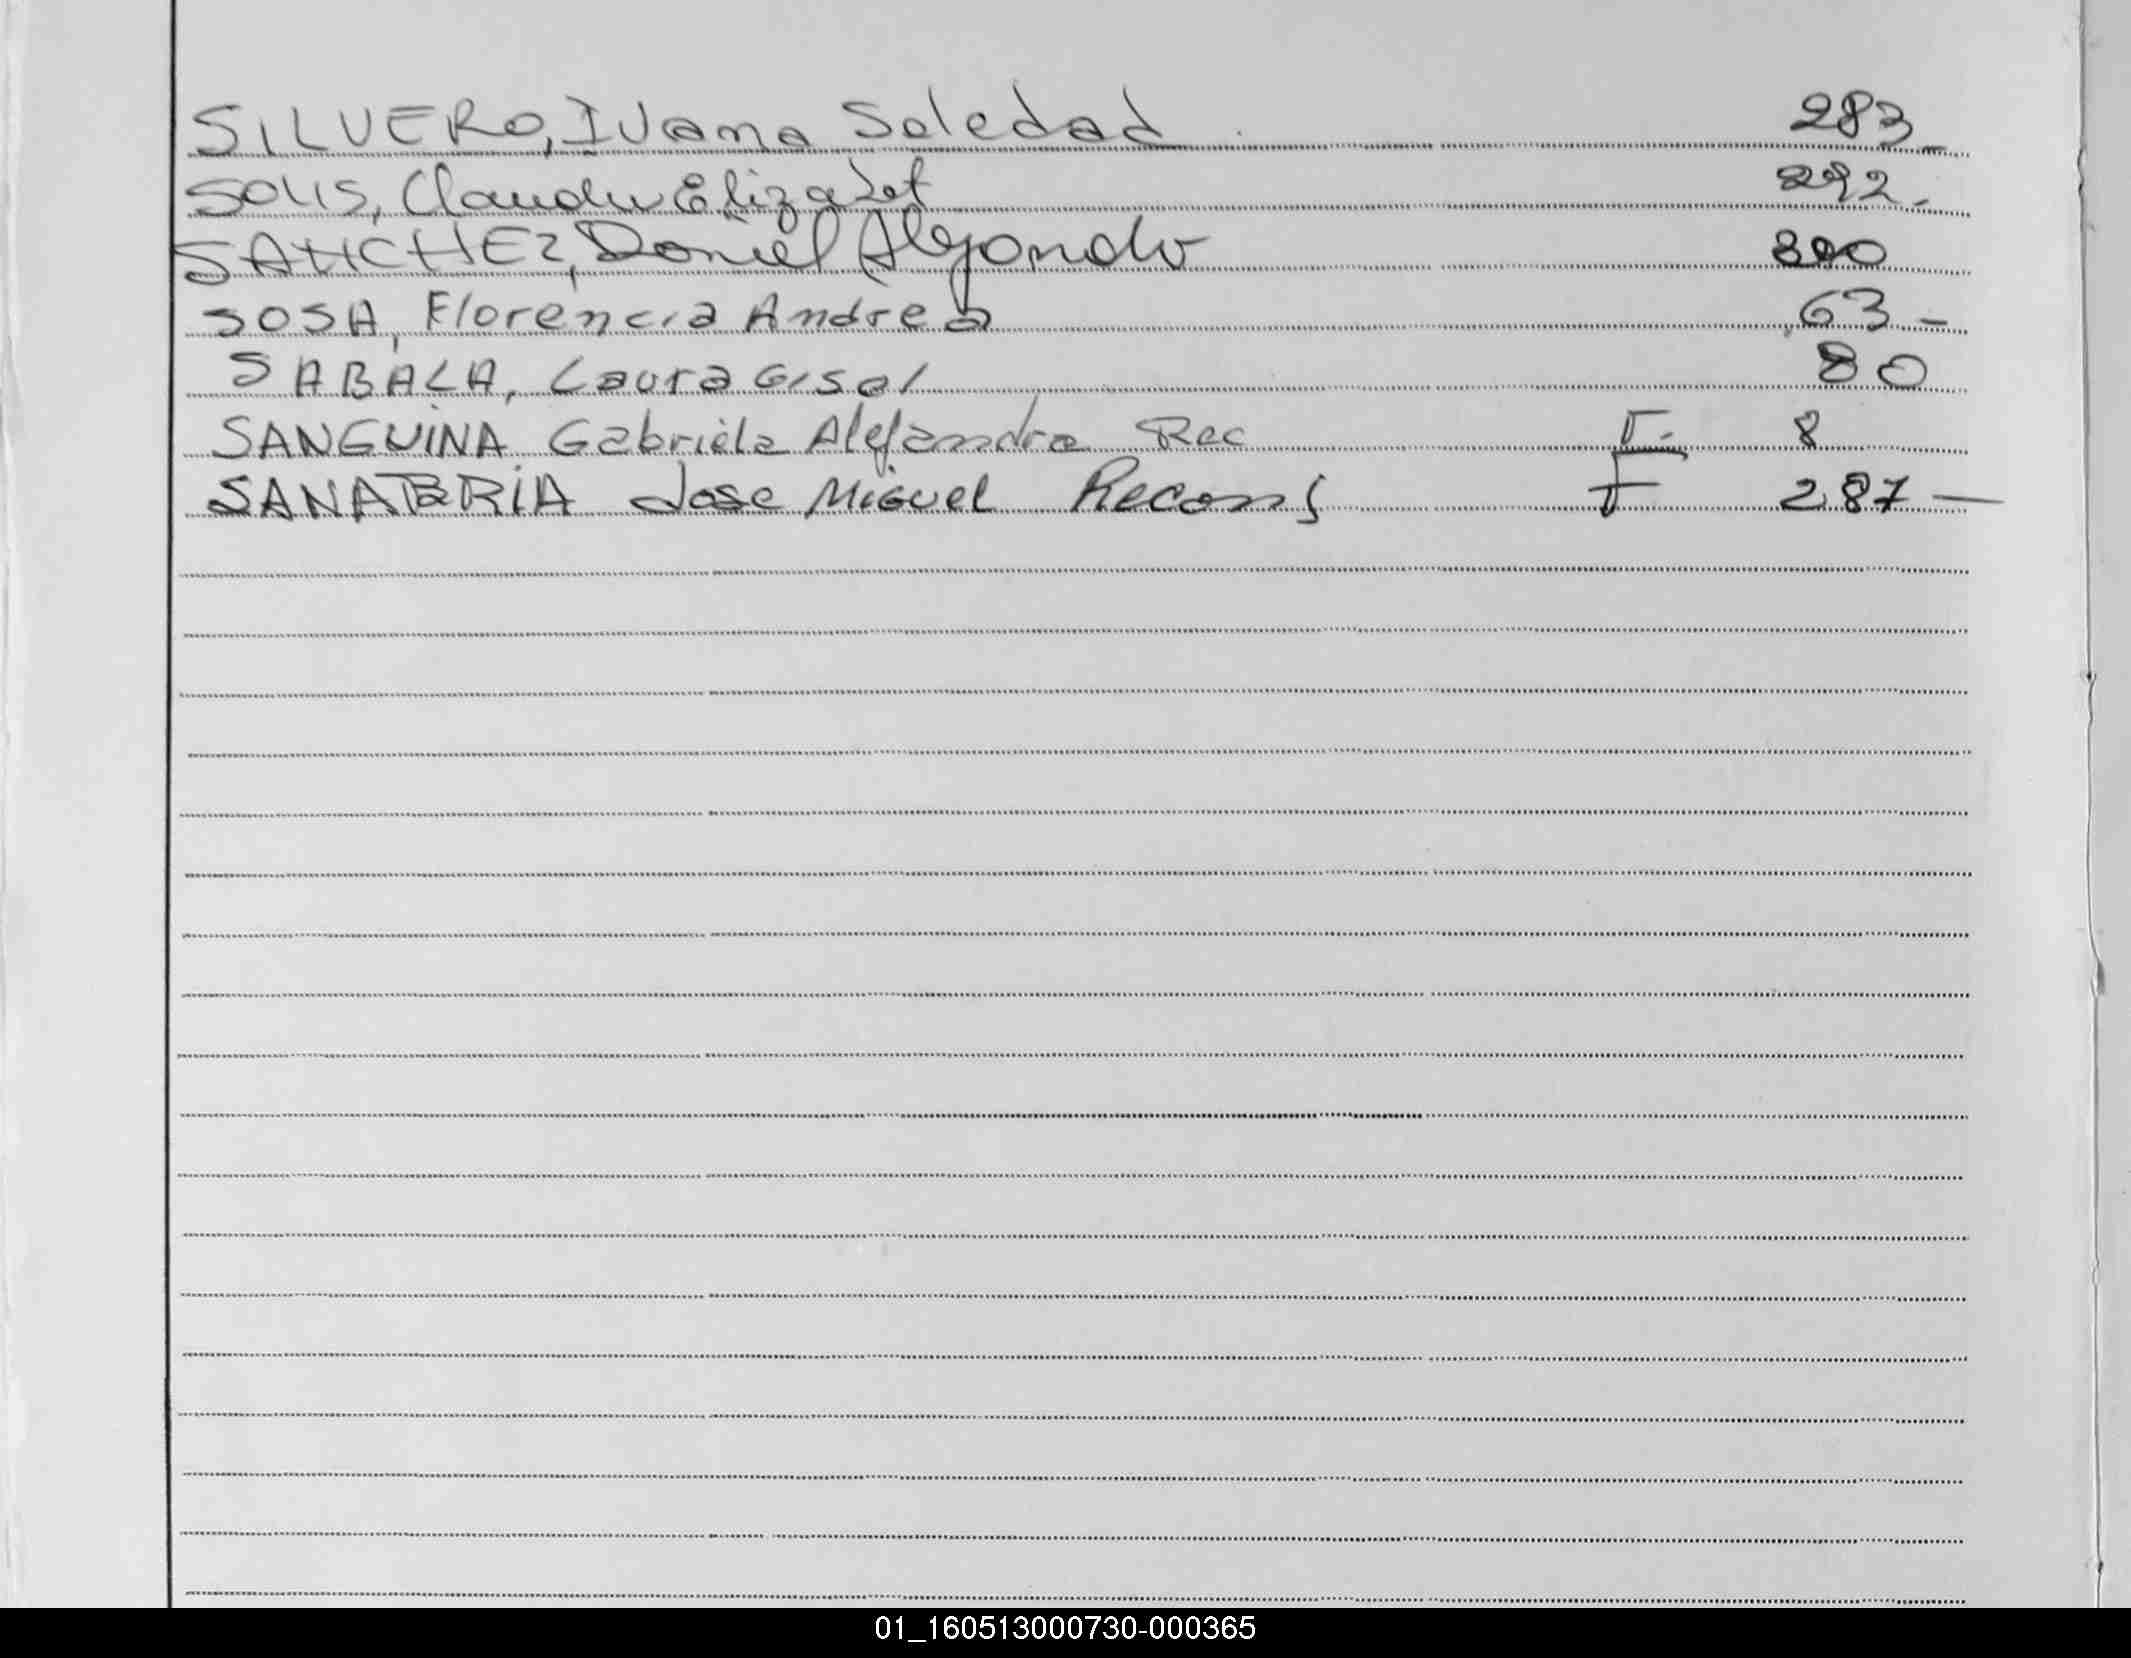 SILVERO, Ivana Soledad 283-
SOLIS, Claudia Elizabet 292-
SANCHEZ, Daniel Alejandro 300
SOSA, Florencia Andrea 63-
SABALA, Laura Gisel 80
SANGUINA Gabriela Alejandra Rec F. 8
SANABRIA Jose Miguel Recons F 287-
01_160513000730-000365